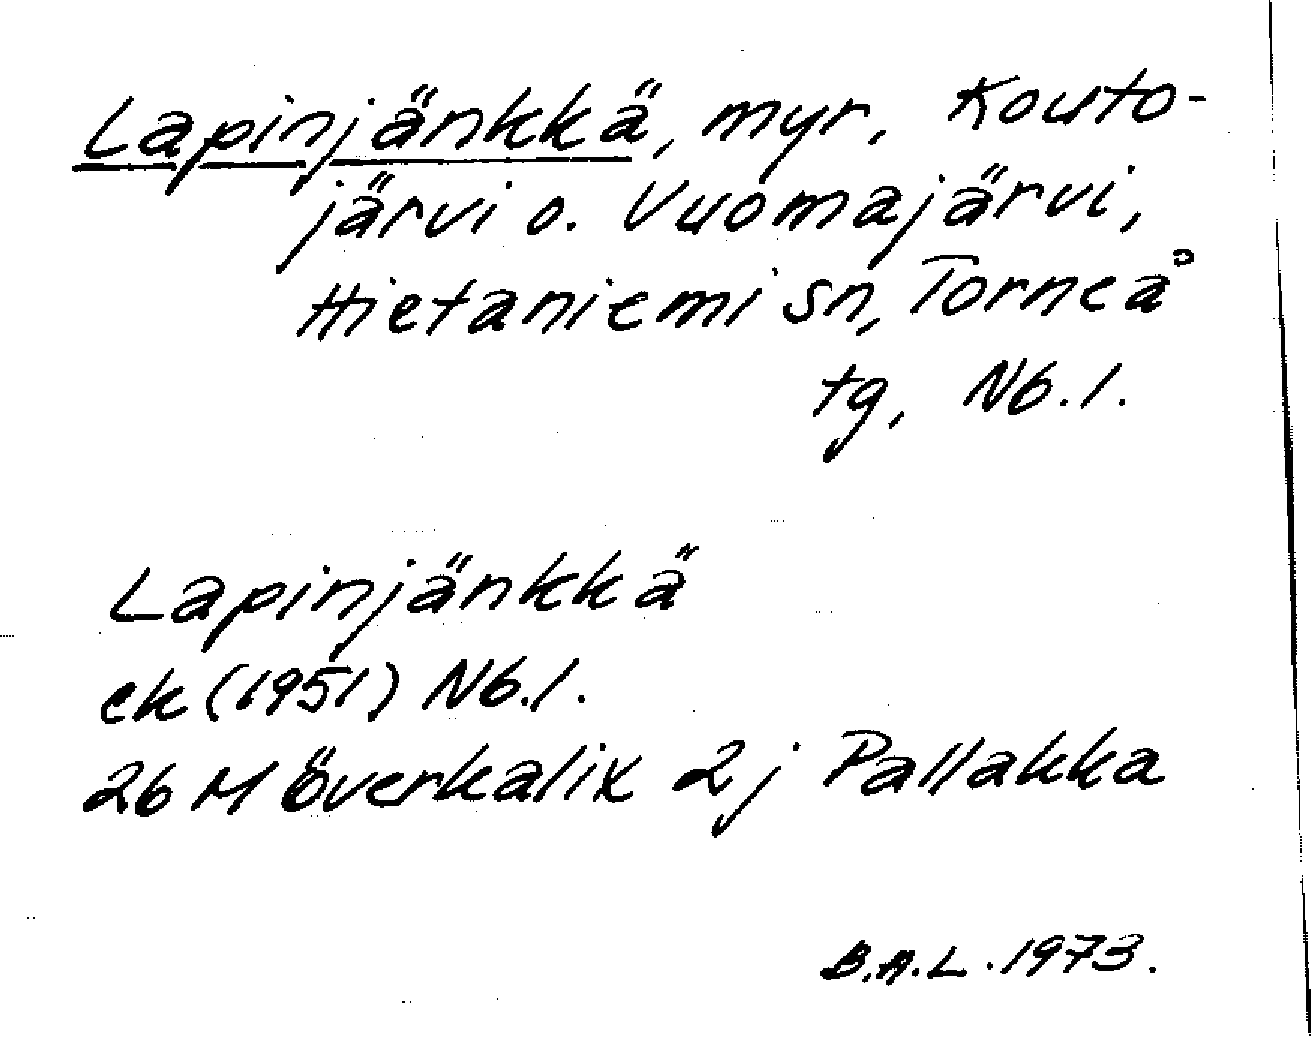 Lapinjänkkä, myr, Kouto-
järvi o. Vuomajärvi,
Hietaniemi sn, Torneå
tg, Nb.l.
Lapinjänkkä
ek (1951) Nb.l.
26 M Överkalix 2j Pallakka
B.A.L. 1973.